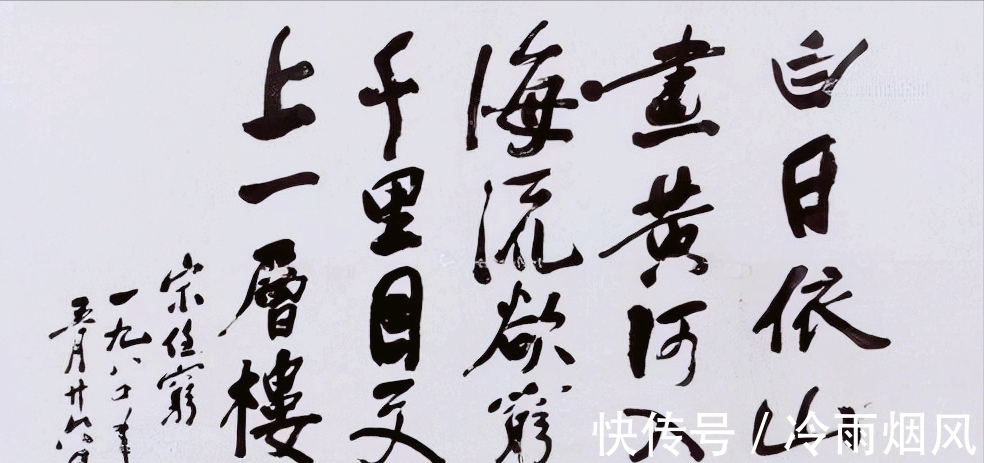 白日依山
盡黄河入
海流欲窮
千里目更
上一層樓
宋任窮
一九八
五月廿
快传号 / 冷雨烟风